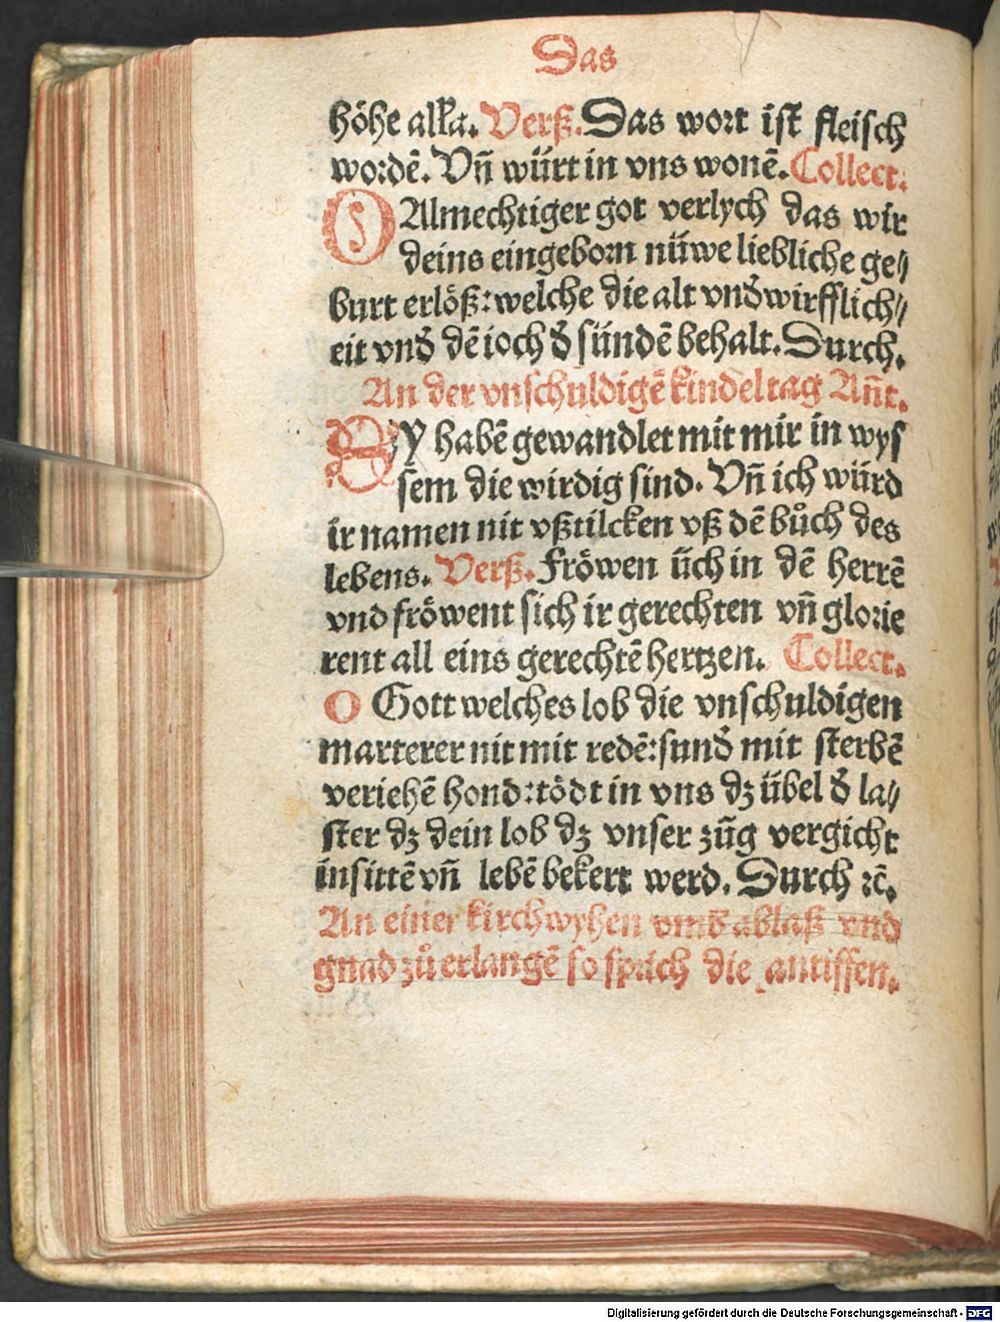 Das
höhe alľa. Verß. Das wort ist fleisch
wordē. Vn̄ würt in vns wonē. Collect.
O Almechtiger got verlych das wir
deins eingeborn nüwe liebliche ge⸗
burt erlöß: welche die alt vnd̕ wirfflich⸗
eit vnd̕ dē ioch d̕ sündē behalt. Durch.
An der vnschuldigē kindel tag An̄t.
Sy habē gewandlet mit mir in wys
sem die wirdig sind. Vn̄ ich würd
ir namen nit vßtilcken vß dē bůch des
lebens. Verß. Fröwen üch in dē herrē
vnd fröwent sich ir gerechten vn̄ glorie
rent all eins gerechtē hertzen. Collect.
O Gott welches lob die vnschuldigen
marterer nit mit redē: sund̕ mit sterbē
veriehē hond: tödt in vns dz übel d̕ la⸗
ster dz dein lob dz vnser zūg vergicht
in sittē vn̄ lebē bekert werd. Durch ꝛc̄.
An einer kirchwyhen vmb ablaß vnd
gnad zů erlangē so sprich die antiffen.
Digitalisierung gefördert durch die Deutsche Forschungsgemeinschaft - DFG